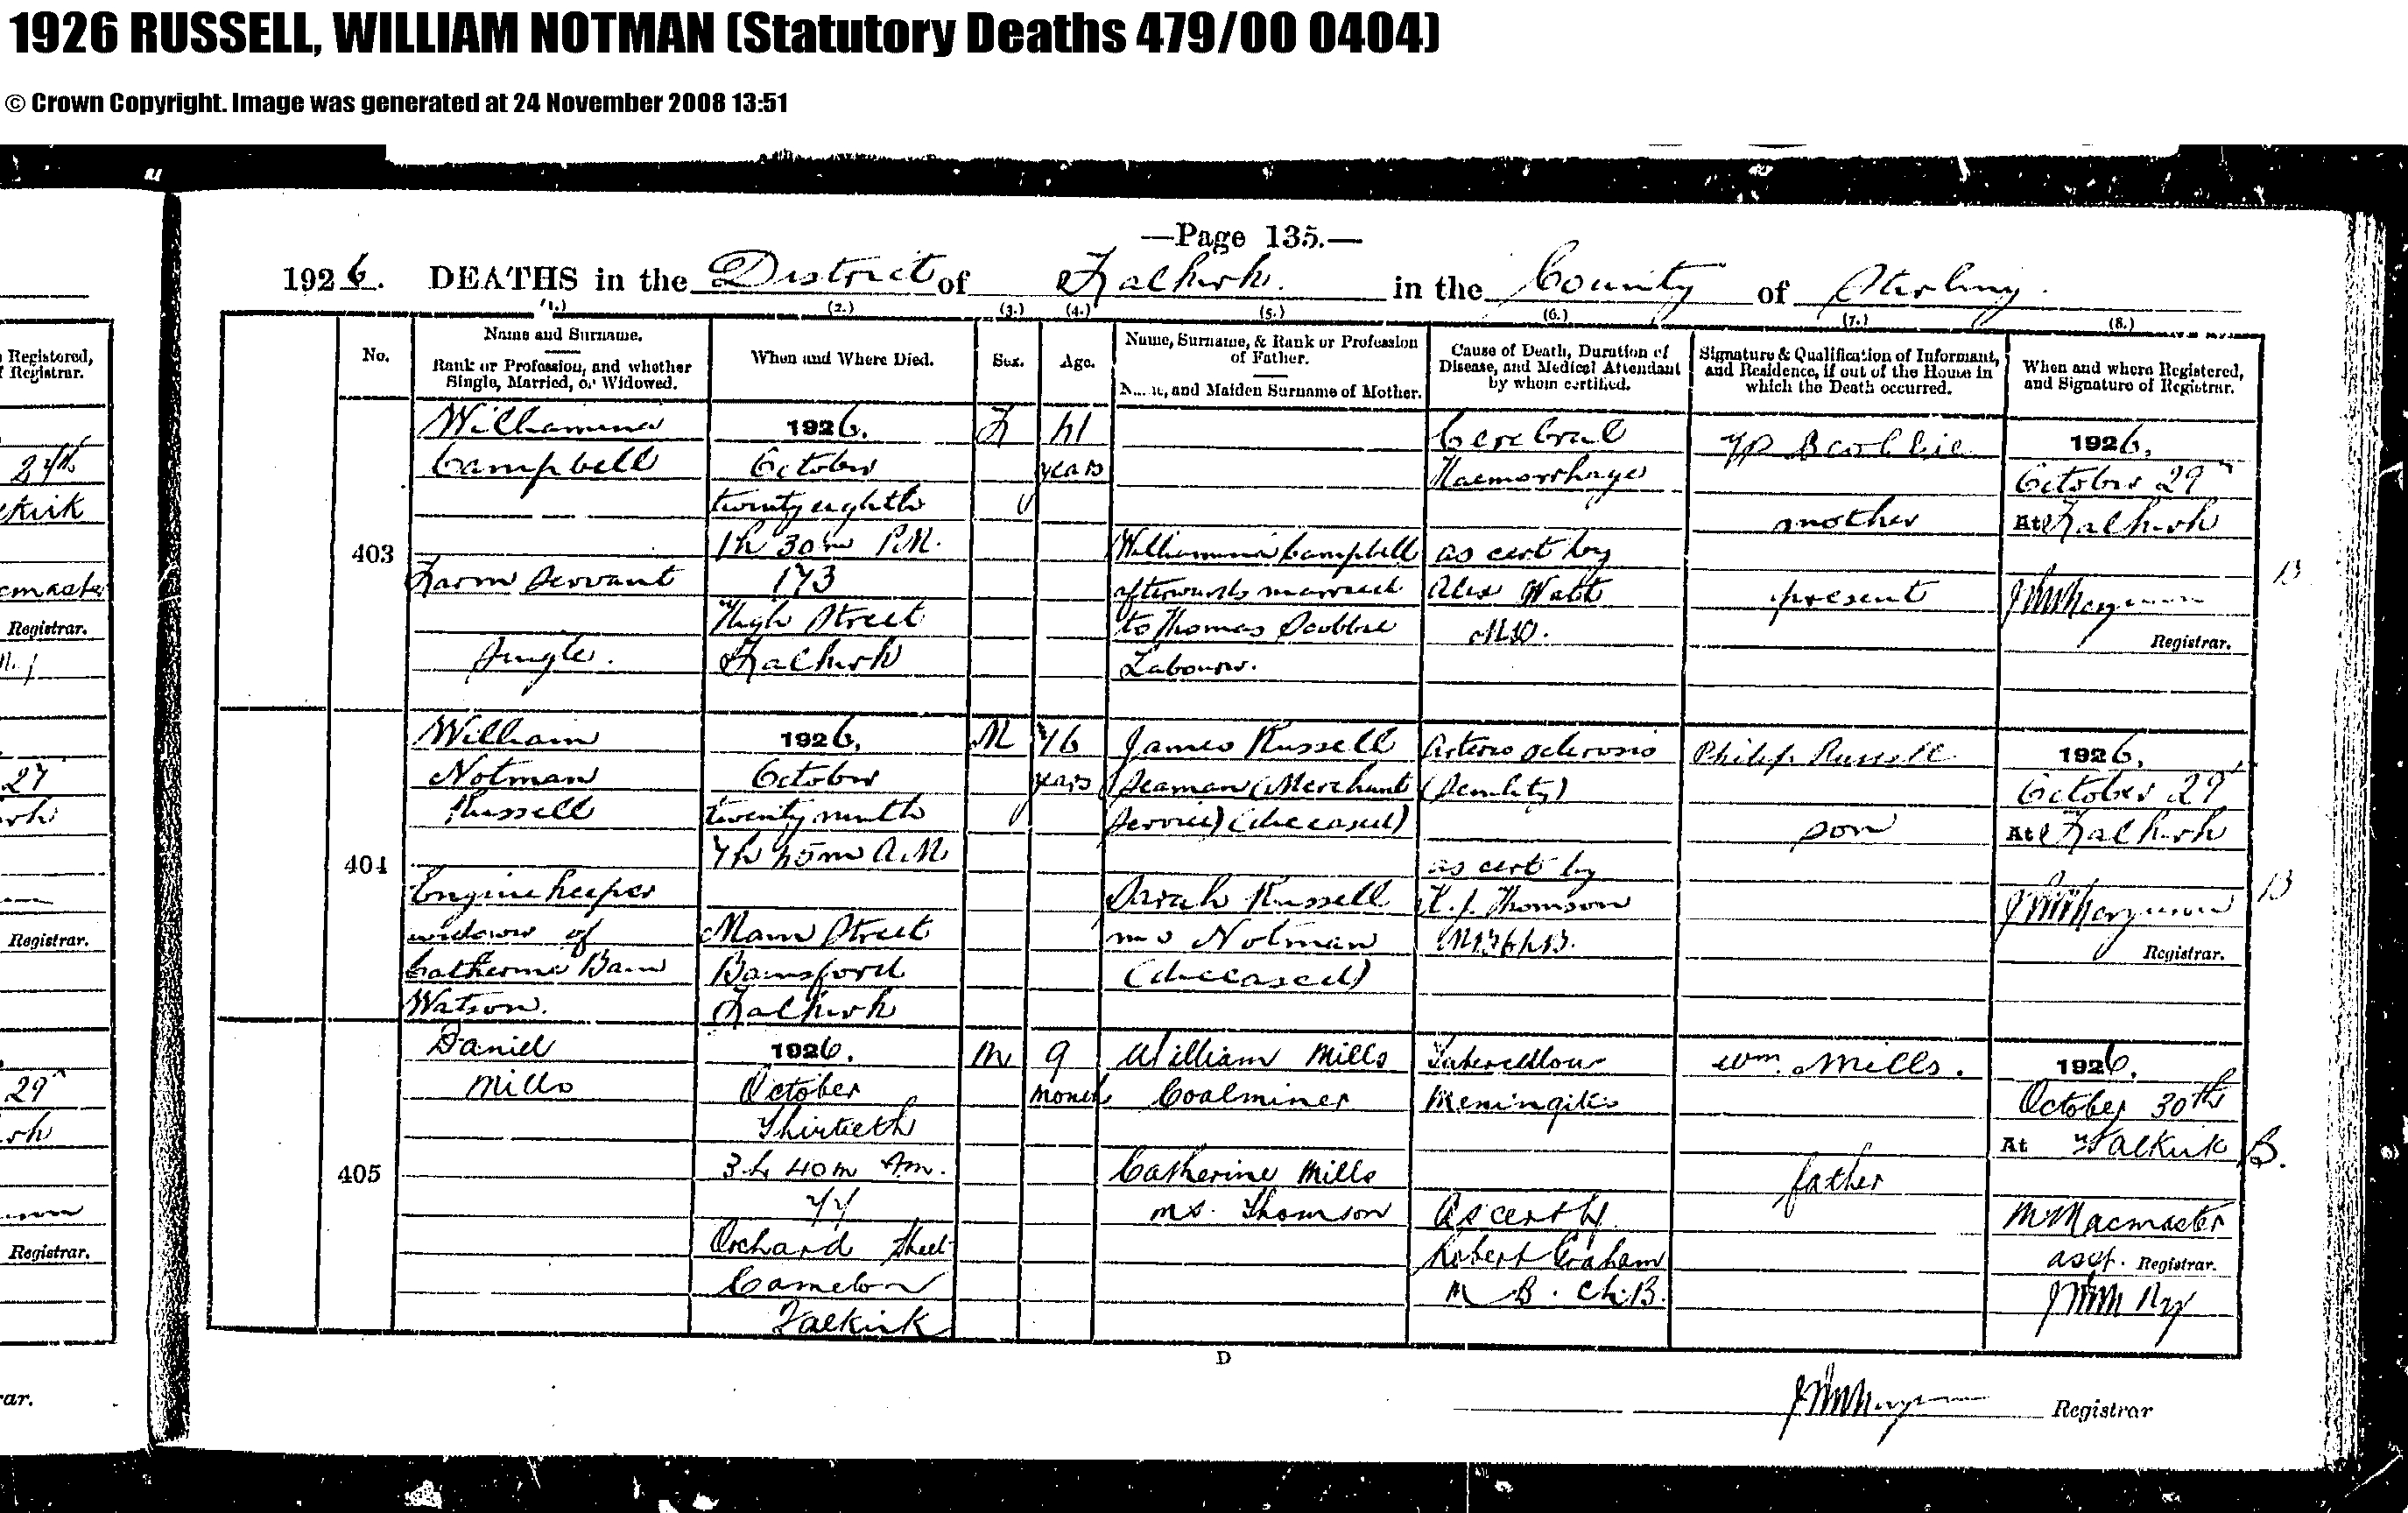 1926 RUSSELL, WILLIAM NOTMAN (Statutory Deaths 479/00 0404)
© Crown Copyright. Image was generated at 24 November 2008 13:51
—Page 135.—
1926. DEATHS in the District of Falkirk. in the County of Stirling.
(1.) (2.) (3.) (4.) (5.) (6.) (7.) (8.)
No.
Name and Surname.
Rank or Profession, and whether
Single, Married, or Widowed.
When and Where Died.
Sex.
Age.
Name, Surname, & Rank or Profession
of Father.
and Maiden Surname of Mother.
Cause of Death, Duration of
Disease, and Medical Attendant
by whom certified.
Signature & Qualification of Informant,
and Residence, if out of the House in
which the Death occurred.
When and where Registered,
and Signature of Registrar.
403
Williamina
Campbell
Farm Servant
Single.
1926.
October
twenty eighth
1h 30m P.M.
173
High Street
Falkirk
F
41
years
Williamina Campbell
afterwards married
to Thomas Scobbie
Labourer.
Cerebral
Haemorrhage
as cert by
Alex Watt
M.D.
Scobbie
mother
present
1926.
October 29"
At Falkirk
Registrar.
B
404
William
Notman
Russell
Engine keeper
widower of
Catherine Bain
Watson.
1926.
October
twenty ninth
7h 45m A.M
Main Street
Bainsford
Falkirk
M
76
years
James Russell
Seaman (Merchant
Service) (deceased)
Sarah Russell
m s Notman
(deceased)
Arterio sclerosis
(Senility)
as cert by
Thomson
M.B.Ch.B.
Philip Russell
son
1926.
October 29
At Falkirk
Registrar.
B
405
Daniel
Mills
1926.
October
Thirtieth
3.h 40m Am.
77
Orchard Street
Camelon
Falkirk
M
9
months
William Mills
Coalminer
Catherine Mills
ms. Thomson
Tubercular
Meningitis
As cert by
Robert Graham
M B. Ch.B.
Wm. Mills.
father
1926.
October 30th
At Falkirk
M Macmaster
asst. Registrar.
B.
D
Registrar
Registered,
Registrar.
27th
Registrar.
27
Registrar.
29"
Registrar.